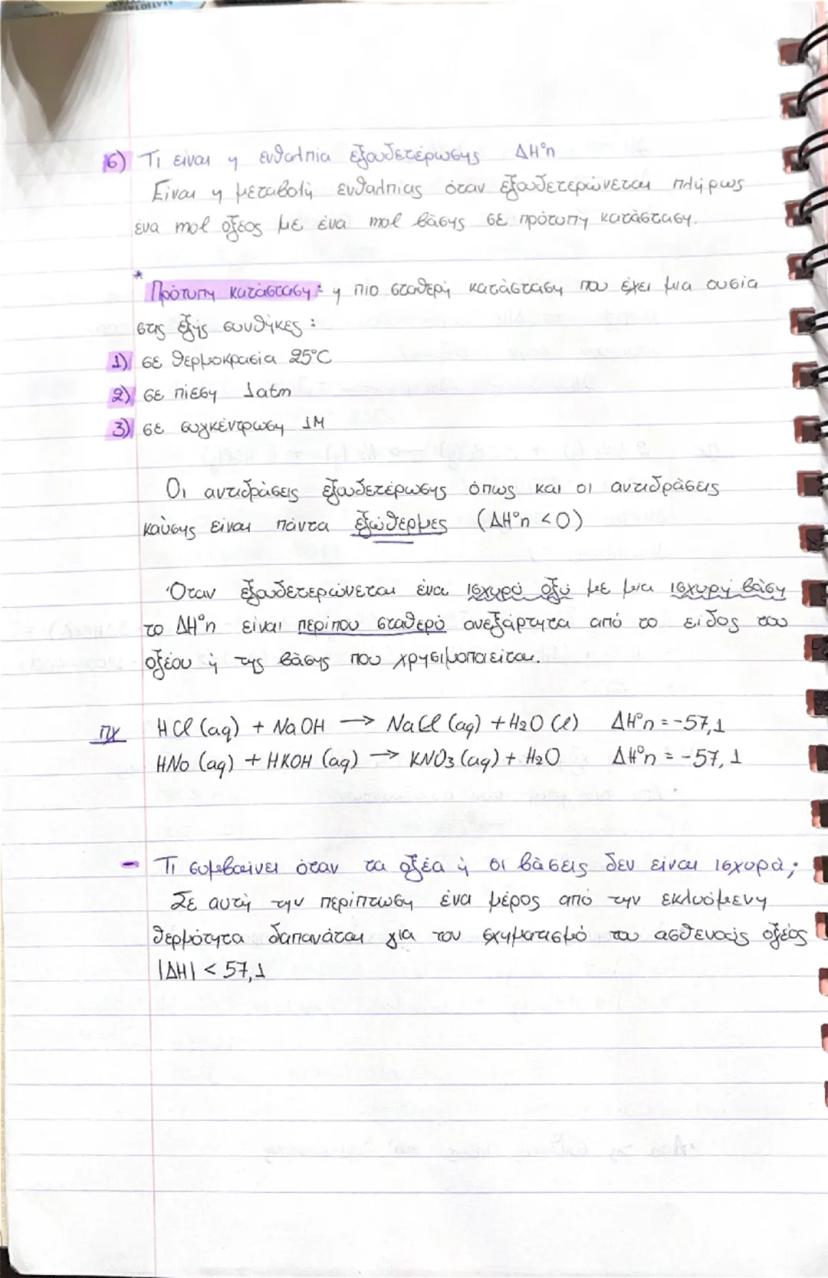 6) Τι είναι η ενθαλπία εξουδετέρωσης ΔH°n
Είναι η μεταβολή ενθαλπίας όταν εξουδετερώνεται πλήρως
ένα mol οξέος με ένα mol βάσης σε πρότυπη κατάσταση.
* Πρότυπη κατάσταση: η πιο σταθερή κατάσταση που έχει μια ουσία
στις εξής συνθήκες:
1) σε θερμοκρασία 25°C
2) σε πίεση 1atm
3) σε συγκέντρωση 1M
Οι αντιδράσεις εξουδετέρωσης όπως και οι αντιδράσεις
καύσης είναι πάντα εξώθερμες (ΔH°n <0)
Όταν εξουδετερώνεται ένα ισχυρό οξύ με μια ισχυρή βάση
το ΔH°n είναι περίπου σταθερό ανεξάρτητα από το είδος του
οξέου ή της βάσης που χρησιμοποιείται.
πχ HCl (aq) + NaOH → NaCl (aq) + H2O (l) ΔH°n = -57,1
HNo (aq) + HKOH (aq) → KNO3 (aq) + H2O ΔH°n = -57,1
- Τι συμβαίνει όταν τα οξέα ή οι βάσεις δεν είναι ισχυρά;
Σε αυτή την περίπτωση ένα μέρος από την εκλυόμενη
θερμότητα δαπανάται για τον σχηματισμό του ασθενούς οξέος
|ΔH| < 57,1